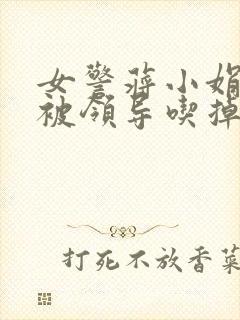 女警蒋小娟
被领导喫掉
打死不放香菜